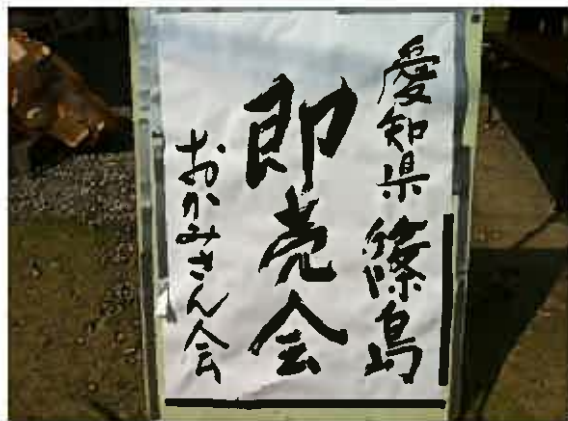 愛知県篠島
即売会
おかみさん会